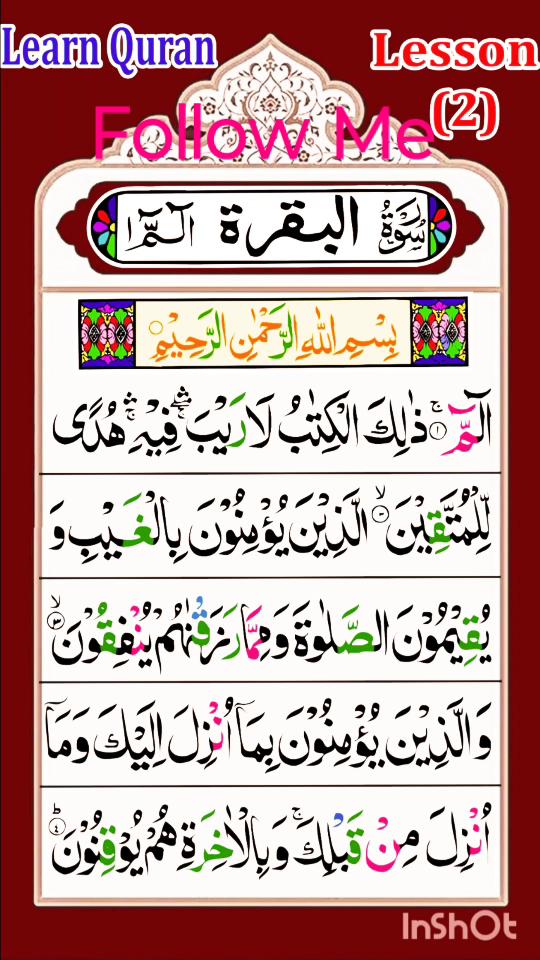 Learn Quran
Lesson
(2)
Follow Me
سُوْرَةُ الْبَقَرَةِ الٓمّٓ ١
بِسْمِ اللّٰهِ الرَّحْمٰنِ الرَّحِيْمِ
الٓمّٓ ۚ‏﴿۱﴾ ذٰلِكَ الْكِتٰبُ لَا رَيْبَ ۛۖۚ فِيْهِ ۛۚ هُدًى
لِّلْمُتَّقِيْنَ ۙ﴿۲﴾ الَّذِيْنَ يُؤْمِنُوْنَ بِالْغَيْبِ وَ
يُقِيْمُوْنَ الصَّلٰوةَ وَمِمَّا رَزَقْنٰهُمْ يُنْفِقُوْنَ ۙ﴿۳﴾
وَالَّذِيْنَ يُؤْمِنُوْنَ بِمَآ اُنْزِلَ اِلَيْكَ وَمَآ
اُنْزِلَ مِنْ قَبْلِكَ ۚ وَبِالْاٰخِرَةِ هُمْ يُوْقِنُوْنَ ؕ﴿۴﴾
InShOt